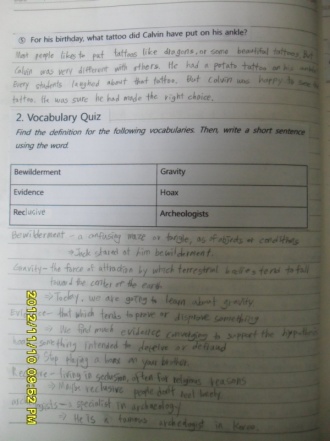 ⑤ For his birthday, what tattoo did Calvin have put on his ankle?
Most people likes to put tattoos like dragons, or some beautiful tattoos. But
Calvin was very different with others. He had a potato tattoo on his ankle.
Every students laughed about that tattoo. But Calvin was happy to have the
tattoo. He was sure he had made the right choice.
2. Vocabulary Quiz
Find the definition for the following vocabularies. Then, write a short sentence
using the word.
Bewilderment Gravity
Evidence Hoax
Reclusive Archeologists
Bewilderment - a confusing maze or tangle, as of objects or conditions
⇒ Jack stared at him bewilderment.
Gravity - the force of attraction by which terrestrial bodies tend to fall
toward the center of the earth
⇒ Today, we are going to learn about gravity.
Evidence - that which tends to prove or disprove something
⇒ We find much evidence to support the
something intended to deceive or defraud
Stop playing a hoax on your brother.
Reclusive - living in seclusion, often for religious reasons
⇒ reclusive people
- a specialist in archaeology
⇒ He is a famous archeologist in Korea.
2012/11/10 09:52 PM